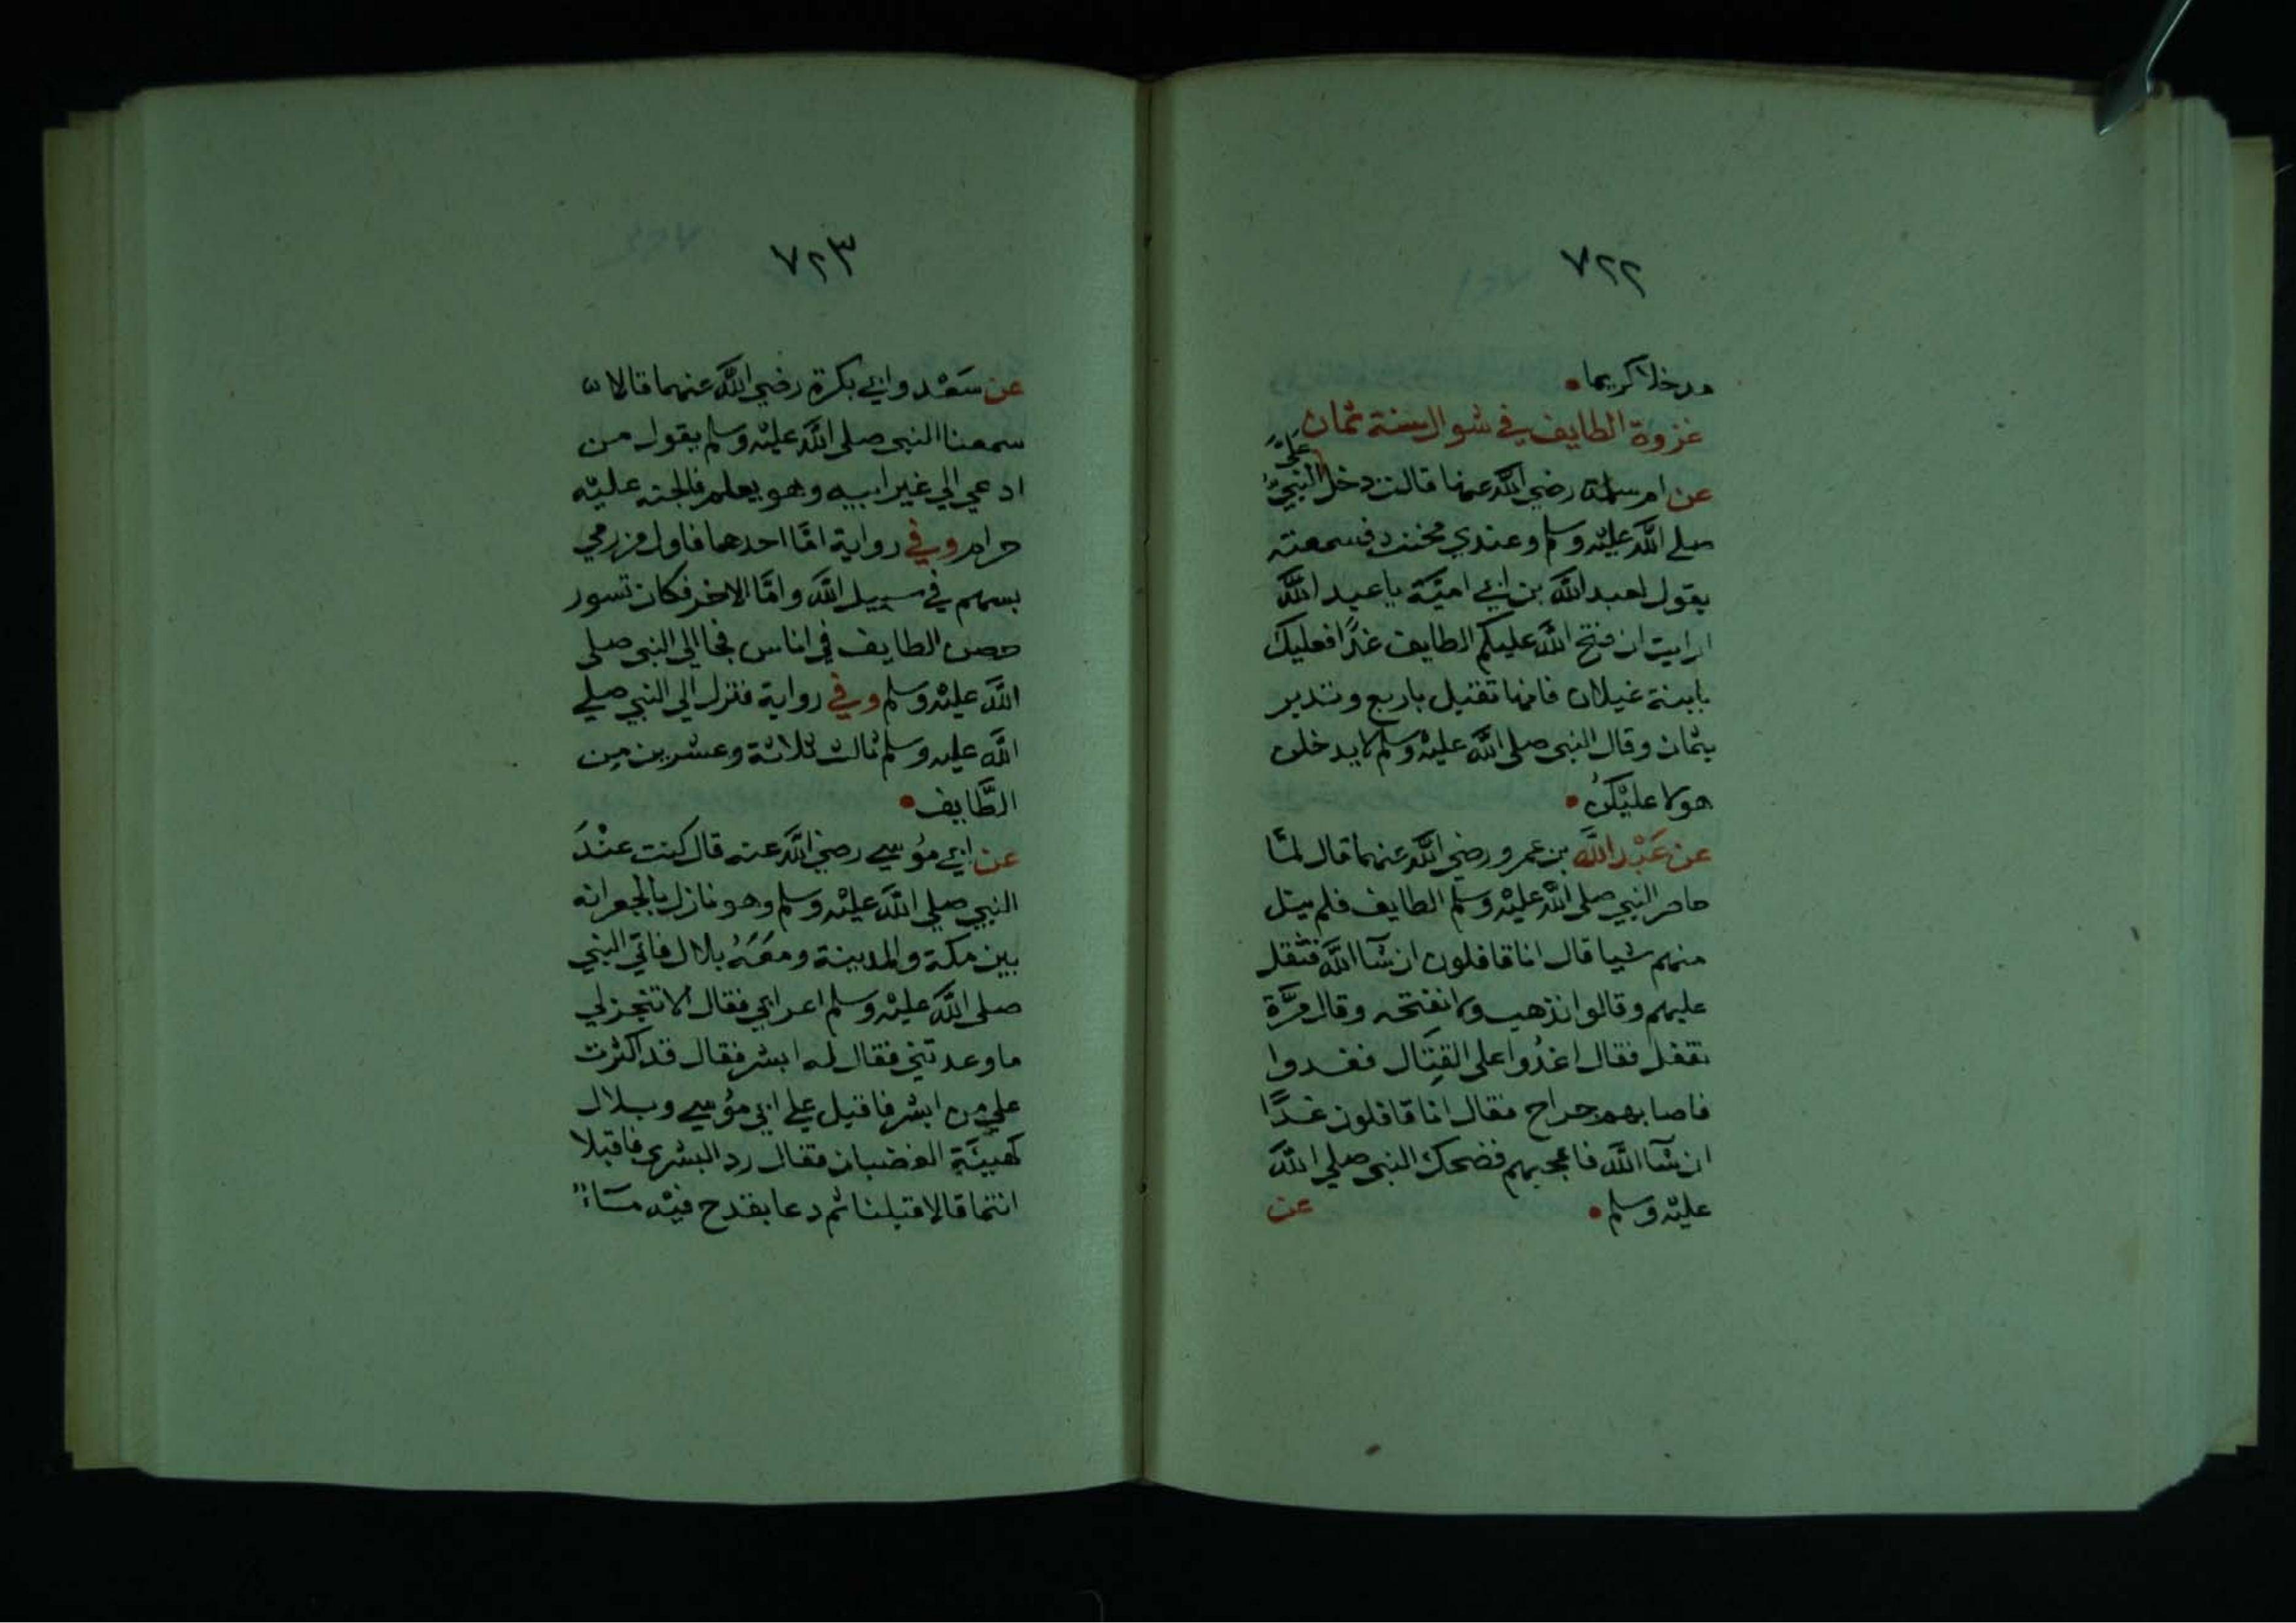 ٧٢٢
مدخلا كريما
غزوة الطايف في شوال سنة ثمان
عن ام سلمة رضي الله عنها قالت دخل عليَّ النبيُّ
صلي الله عليه وسلم وعندي مخنث فسمعته
يقول لعبد الله بن ابي اميَّة يا عبد الله
ارايت ان فتح الله عليكم الطايف غدًا فعليك
بابنة غيلان فانها تقبل باربع وتدبر
بثمان وقال النبي صلي الله عليه وسلم لا يدخلن
هولا عليْكن
عن عَبْد الله بن عمرو رضي الله عنهما قال لمَّا
حاصر النبي صلي الله عليْه وسلم الطايف فلم ينل
منهم شيا قال انا قافلون ان شآ الله فثقل
عليهم وقالوا نذهب ولا نفتحه وقال مرَّة
نقفل فقال اغدُوا على القِتَال فغدوا
فاصابهم جراح فقال انا قافلون غدًا
ان شآ الله فاعجبهم فضحك النبي صلي الله
عليْه وسلم
عن
٧٢٣
عن سَعْد وابي بكرة رضي الله عنهما قالا
سمعنا النبي صلي الله عليْه وسلم يقول من
ادعي الي غير ابيه وهو يعلم فالجنه عليْه
حرام وفي رواية امَّا احدهما فاول من رمي
بسهم في سبيل الله وامَّا الاخر فكان تسور
حصن الطايف في اناس فجا الي النبي صلي
الله عليْه وسلم وفي رواية فنزل الي النبي صلي
الله عليه وسلم ثالث ثلاثة وعشرين من
الطَّايف
عن ابي مُوسي رضي الله عنه قال كنت عنْدَ
النبي صلي الله عليْه وسلم وهو نازل بالجعرانه
بين مكة والمدينة ومعَهُ بلال فاتي النبي
صلي الله عليْه وسلم اعرابي فقال الا تنجز لي
ما وعدتني فقال له ابشر فقال قد اكثرت
علي من ابشر فاقبل علي ابي مُوسي وبلال
كهيئَة الغضبان فقال رد البشرى فاقبلا
انتما قالا قبلنا ثم دعا بقدح فيْه مَاءٌ